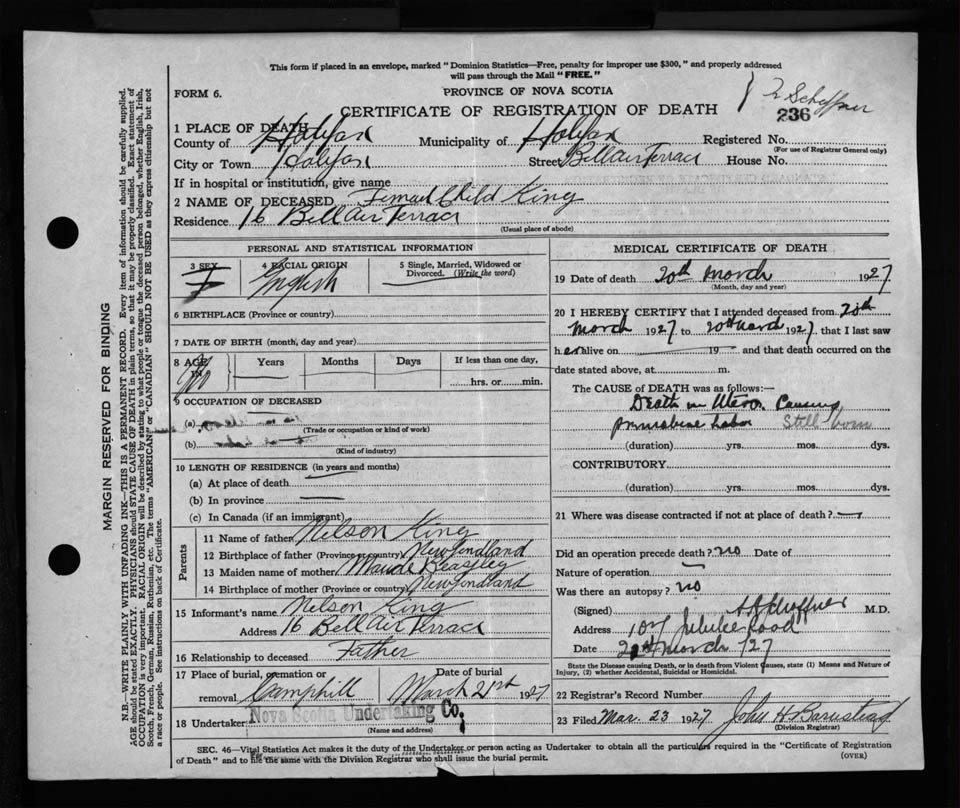 This form if placed in an envelope, marked "Dominion Statistics—Free, penalty for improper use $300," and properly addressed
will pass through the Mail "FREE."
FORM 6.
PROVINCE OF NOVA SCOTIA
CERTIFICATE OF REGISTRATION OF DEATH
236
1 PLACE OF DEATH
County of Halifax Municipality of Halifax Registered No.
(For use of Registrar General only)
City or Town Halifax Street Bellair Terrace House No.
If in hospital or institution, give name
2 NAME OF DECEASED Female Child King
Residence 16 Bellair Terrace
(Usual place of abode)
PERSONAL AND STATISTICAL INFORMATION
3 SEX 4 RACIAL ORIGIN 5 Single, Married, Widowed or
Divorced. (Write the word)
F English
6 BIRTHPLACE (Province or country)
7 DATE OF BIRTH (month, day and year)
8 AGE Years Months Days If less than one day,
IN
hrs. or min.
9 OCCUPATION OF DECEASED
(a)
(Trade or occupation or kind of work)
(b)
(Kind of industry)
10 LENGTH OF RESIDENCE (in years and months)
(a) At place of death
(b) In province
(c) In Canada (if an immigrant)
Parents
11 Name of father Nelson King
12 Birthplace of father (Province or country) Newfondland
13 Maiden name of mother Maude Beasley
14 Birthplace of mother (Province or country) Newfondland
15 Informant's name Nelson King
Address 16 Bell Air Terrace
16 Relationship to deceased Father
17 Place of burial, cremation or Date of burial
removal Camphill March 21st 1927
18 Undertaker Nova Scotia Undertaking Co.
(Name and address)
MEDICAL CERTIFICATE OF DEATH
19 Date of death 20th March 1927
(Month, day and year)
20 I HEREBY CERTIFY that I attended deceased from 20th
March 1927 to 20th March 1927, that I last saw
her alive on 19 and that death occurred on the
date stated above, at m.
The CAUSE OF DEATH was as follows:—
Death in Utero. Causing
premature Labor Still born
(duration) yrs. mos. dys.
CONTRIBUTORY
(duration) yrs. mos. dys.
21 Where was disease contracted if not at place of death?
Did an operation precede death? no Date of
Nature of operation
Was there an autopsy? no
(Signed) M.D.
Address 107 Jubilee Road
Date March '27
State the Disease causing Death, or in death from Violent Causes, state (1) Means and Nature of
Injury, (2) whether Accidental, Suicidal or Homicidal.
22 Registrar's Record Number
23 Filed Mar. 23 1927 John H Barnstead
(Division Registrar)
SEC. 46—Vital Statistics Act makes it the duty of the Undertaker or person acting as Undertaker to obtain all the particulars required in the "Certificate of Registration
of Death" and to file the same with the Division Registrar who shall issue the burial permit.
(OVER)
MARGIN RESERVED FOR BINDING
N.B.—WRITE PLAINLY WITH UNFADING INK—THIS IS A PERMANENT RECORD. Every item of information should be carefully supplied.
AGE should be stated EXACTLY. PHYSICIANS should STATE CAUSE OF DEATH in plain terms, so that it may be properly classified. Exact statement of
OCCUPATION is very important. RACIAL ORIGIN will be described by stating to what people or tongue the deceased person belonged, whether English, Irish,
Scotch, French, German, Russian, Ruthenian, etc. The terms "AMERICAN" or "CANADIAN" SHOULD NOT BE USED as they express citizenship but not
a race or people. See instructions on back of Certificate.